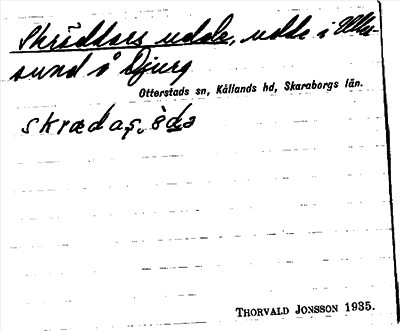 Skräddars udde, udde i Ulle-
sund å Djurg
Otterstads sn, Kållands hd, Skaraborgs län.
skrædaṣ. ùdə
THORVALD JONSSON 1935.